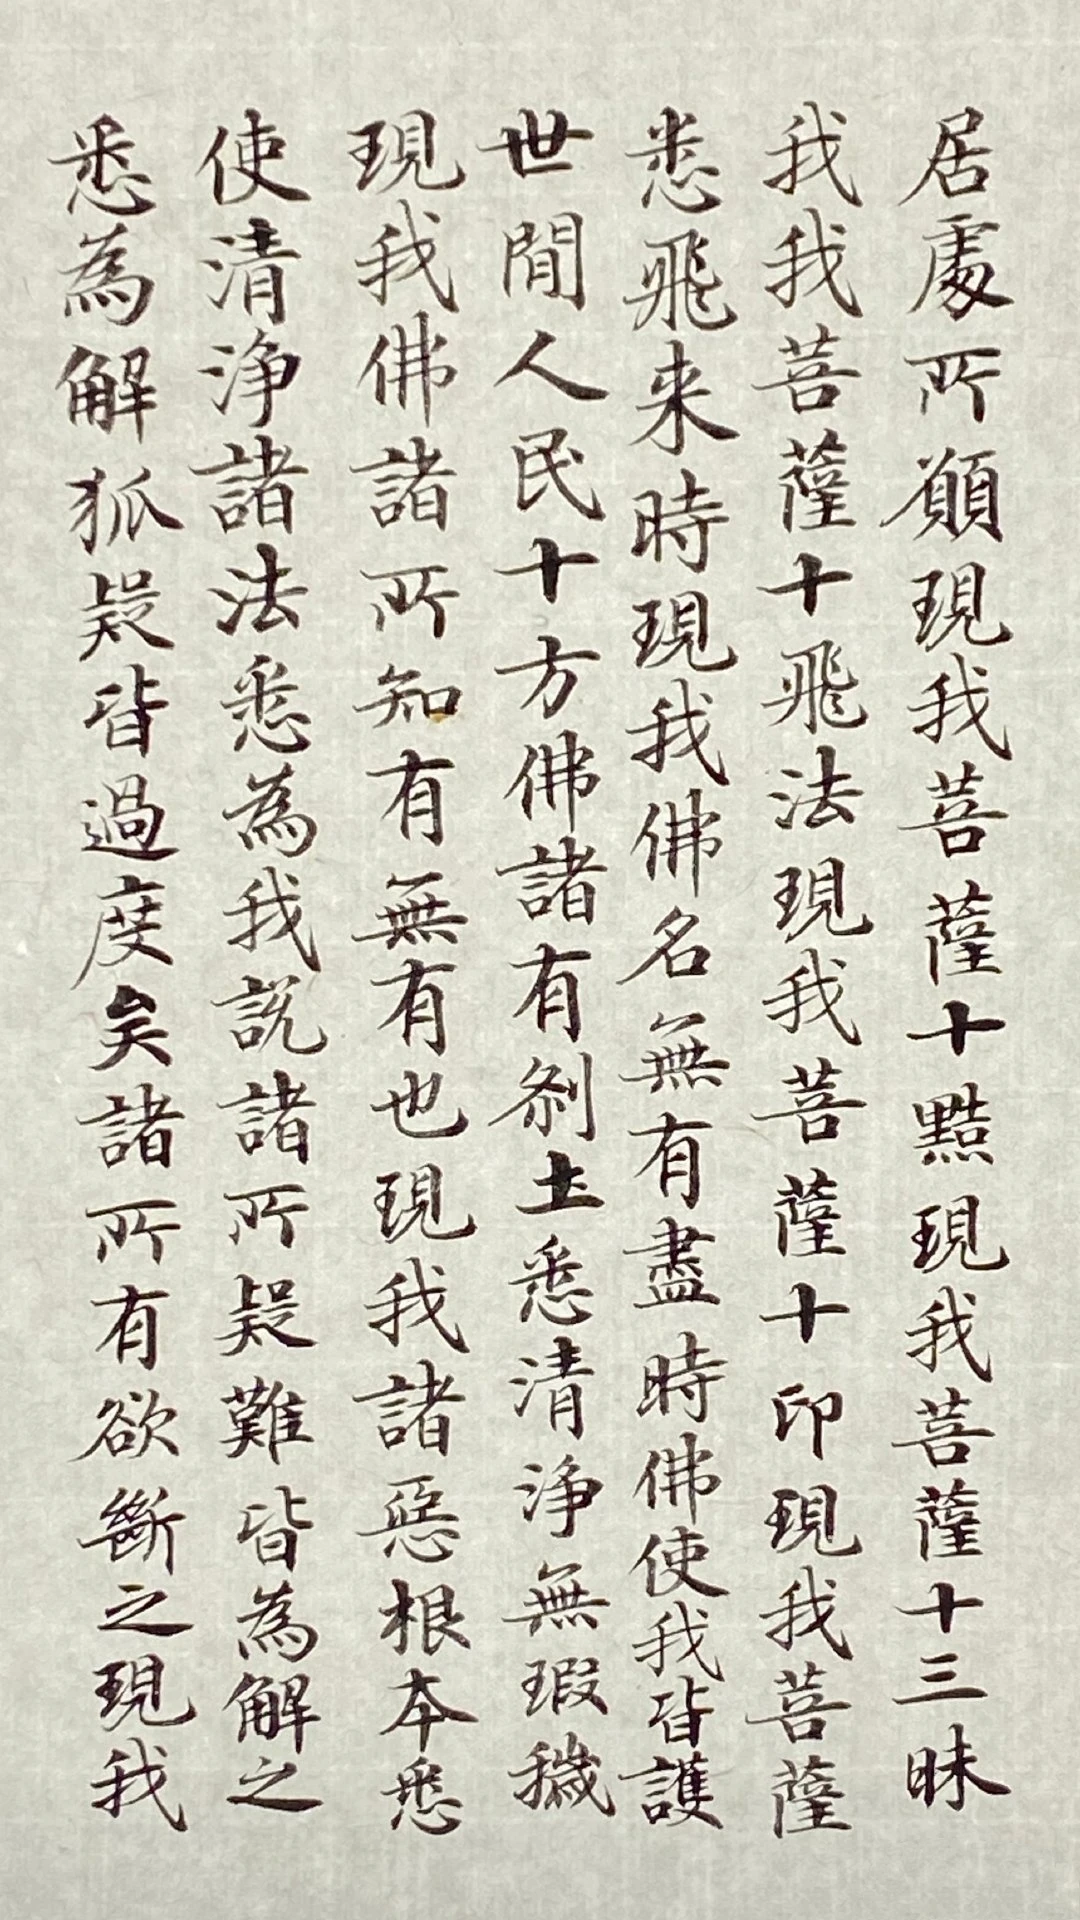 居處所願現我菩薩十點現我菩薩十三昧
我我菩薩十飛法現我菩薩十印現我菩薩
悉飛来時現我佛名無有盡時佛使我皆護
世間人民十方佛諸有刹土悉清淨無瑕穢
現我佛諸所知有無有也現我諸惡根本悉
使清淨諸法悉為我説諸所疑難皆為解之
悉為解狐疑皆過度矣諸所有欲斷之現我